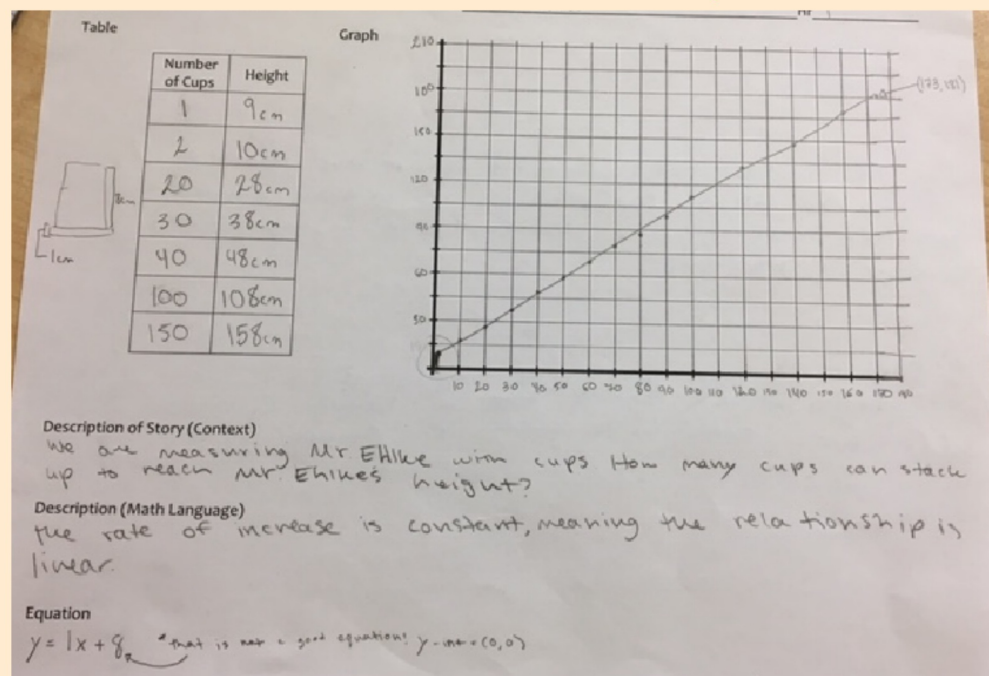 Table
Graph
Number of Cups Height
1 9cm
2 10cm
20 28cm
30 38cm
40 48cm
100 108cm
150 158cm
1cm
210
180
150
120
90
60
30
(173,181)
10 20 30 40 50 60 70 80 90 100 110 120 130 140 150 160 180 190
Description of Story (Context)
We are measuring Mr. Ehlke with cups How many cups can stack
up to reach Mr. Ehlkes height?
Description (Math Language)
The rate of increase is constant, meaning the relationship is
linear.
Equation
y = 1x + 8 *that is not a good equation! y-int = (0,0)